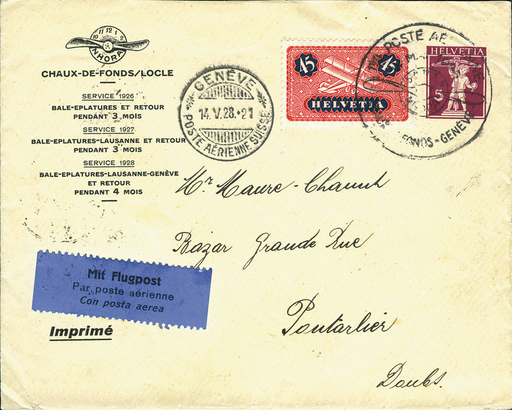 10 11 12 1 2
NHORA
CHAUX-DE-FONDS/LOCLE
SERVICE 1926
BALE-EPLATURES ET RETOUR
PENDANT 3 MOIS
SERVICE 1927
BALE-EPLATURES-LAUSANNE ET RETOUR
PENDANT 3 MOIS
SERVICE 1928
BALE-EPLATURES-LAUSANNE-GENÈVE
ET RETOUR
PENDANT 4 MOIS
GENÈVE
14.V.28.-21
POSTE AÉRIENNE SUISSE
45 45
HELVETIA
POSTE AÉ
FONDS-GENÈVE
HELVETIA
5
Mr Maure-Chanut
Bazar Grande Rue
Pontarlier
Doubs.
Mit Flugpost
Par poste aérienne
Con posta aerea
Imprimé